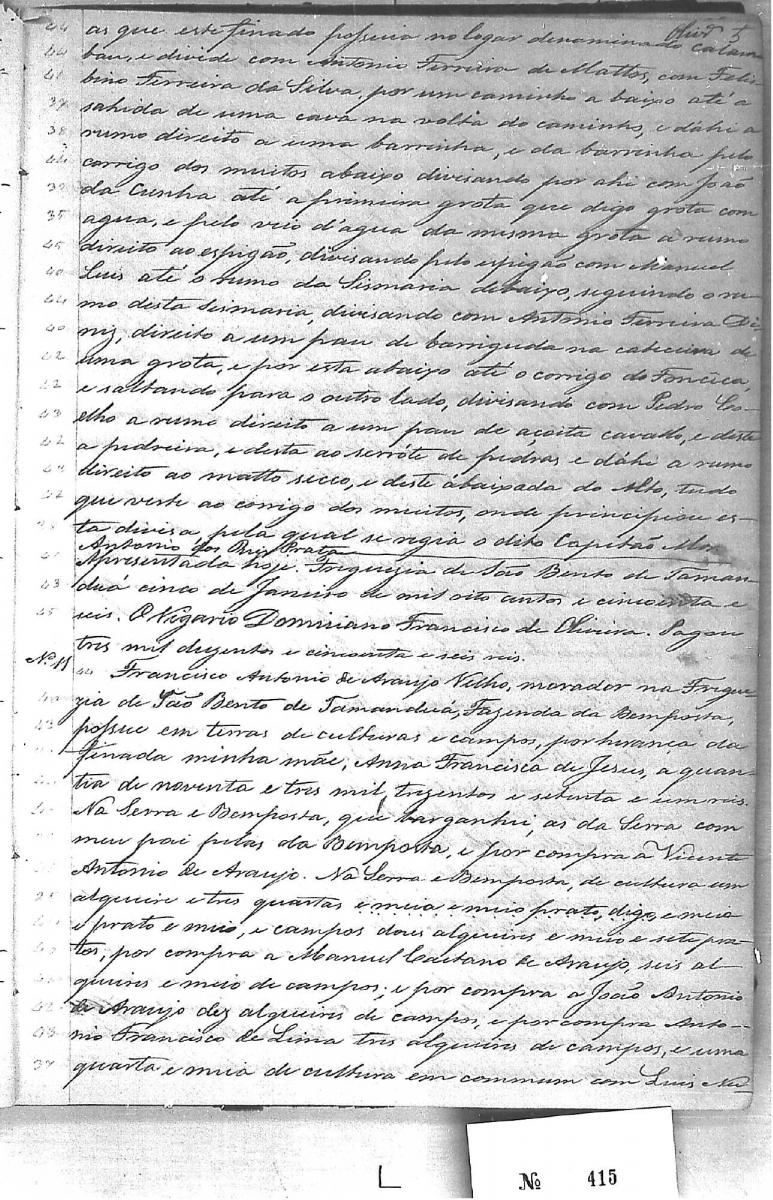 Olivrª 5
44 as que este finado possuia no logar denominado catam
44 bau, e divide com Antonio Ferreira de Mattos, com Feli
41 bino Ferreira da Silva, por um caminho a baixo até a
37 sahida de uma cava na volta do caminho, e dáhi a
38 rumo direito a uma barrinha, e da barrinha pelo
44 corrigo dos muitos abaixo divisando por ahi com João
32 da Cunha até a primeira grota que digo grota com
35 agua, e pelo veio d'agua da mesma grota a rumo
45 direito ao espigão, divisando pelo espigão com Manuel
40 Luis até o rumo da Sismaria debaixo, seguindo o ru-
44 mo desta Sesmaria, divisando com Antonio Ferreira Di
40 niz, direito a um pau de barriguda na cabeceira de
42 uma grota, e por esta abaixo até o corrigo do Foncica,
42 e saltando para o outro lado, divisando com Pedro Co-
43 elho a rumo direito a um pau de açoita cavallo, e deste
42 a pedreira, e desta ao serróte de pedras e dáhi a rumo
48 direito ao matto secco, e deste ábaixada do Alto, tudo
42 que verte ao corrigo dos muitos, onde principiou es-
38 ta divisa pela qual se regia o dito Capitão Mor
Antonio dos Reis Prata
41 Apresentada hoje. Freguezia de São Bento de Taman
43 duá cinco de Janeiro de mil oito centos e cincoenta e
45 seis. O Vigario Domiciano Francisco de Oliveira. Pagou
tres mil duzentos e cincoenta e seis reis.
Nº 11 44 Francisco Antonio de Araujo Velho, morador na Fregue-
40 zia de São Bento de Tamanduá, Fazenda da Bemposta,
43 possue em terras de culturas e campos, por herança da
finada minha mãe, Anna Francisca de Jesus, a quan-
tia de noventa e tres mil, trezentos e setenta e um reis.
Na Serra e Bemposta, que barganhei, as da Serra com
meu pai pelas da Bemposta, e por compra a Vicente
Antonio de Araujo. Na Serra e Bemposta, de cultura um
alqueire e tres quartas e meia e meio prato, digo, e meia
e prato e meio, e campos dous alqueires e meio e sete pra-
tos, por compra a Manuel Caetano de Araujo, seis al-
queires e meio de campos; e por compra a João Antonio
42 de Araujo dez alqueires de campos, e por compra Anto-
43 nio Francisco de Lima tres alqueires de campos, e uma
37 quarta e meia de cultura em commum com Luis Nu-
L
Nº 415